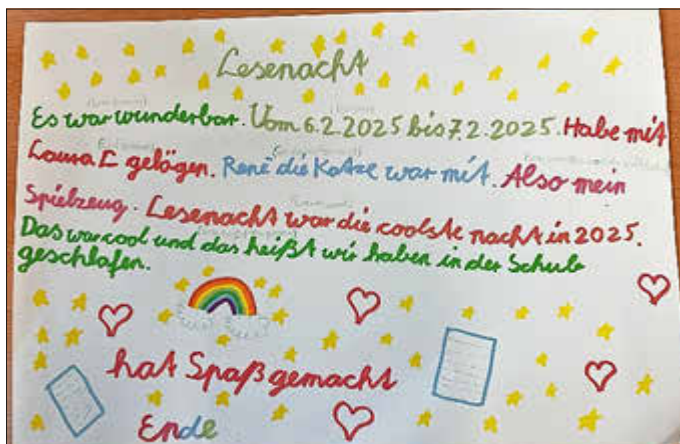 Lesenacht
Es war wunderbar. Vom 6.2.2025 bis 7.2.2025. Habe mit
Laura L gelögen. René die Katze war mit. Also mein
Spielzeug. Lesenacht war die coolste nacht in 2025.
Das war cool und das heißt wir haben in der Schule
geschlafen.
hat Spaß gemacht
Ende